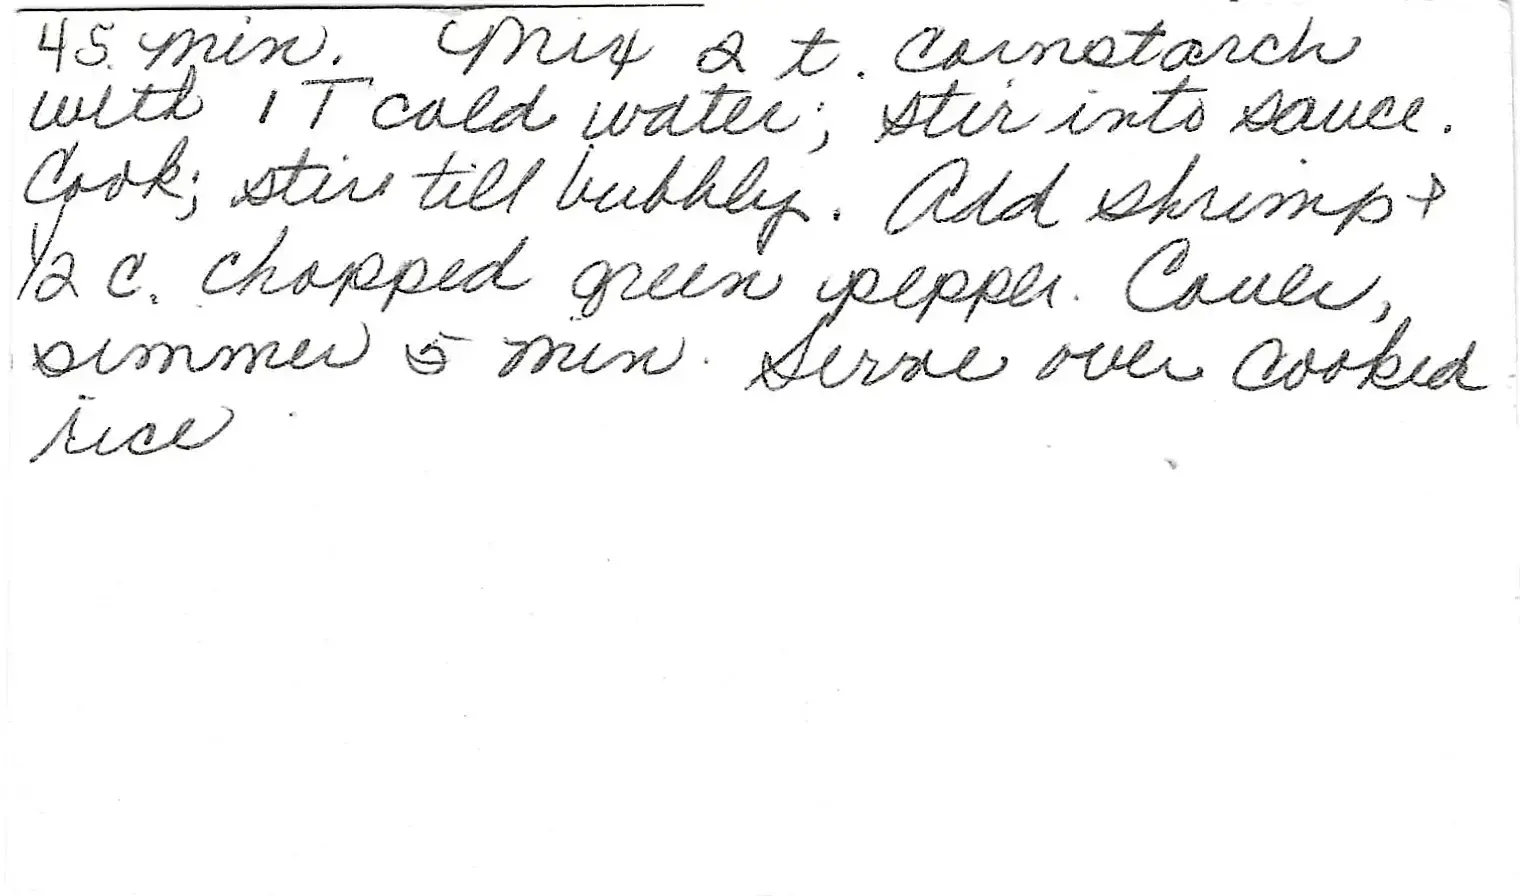 45 min. Mix 2 t. cornstarch
with 1 T cold water; stir into sauce.
Cook; stir till bubbly. Add shrimp +
1/2 c. chopped green pepper. Cover,
simmer 5 min. Serve over cooked
rice